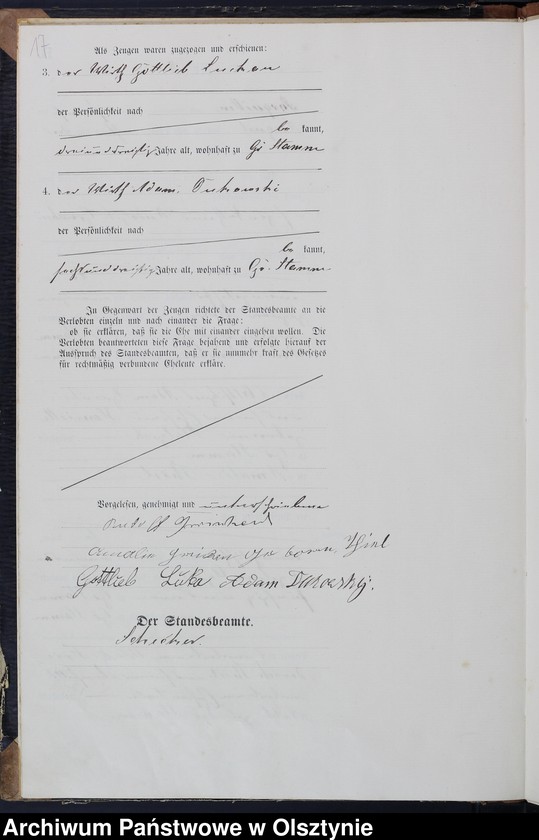 17
Als Zeugen waren zugezogen und erschienen:
3. der Wirth Gottlieb
der Persönlichkeit nach
be kannt,
dreiunddreißig Jahre alt, wohnhaft zu Gr. Stamm
4. der Wirth Adam
der Persönlichkeit nach
be kannt,
sechsunddreißig Jahre alt, wohnhaft zu Gr. Stamm
In Gegenwart der Zeugen richtete der Standesbeamte an die
Verlobten einzeln und nach einander die Frage:
ob sie erklären, daß sie die Ehe mit einander eingehen wollen. Die
Verlobten beantworteten diese Frage bejahend und erfolgte hierauf der
Ausspruch des Standesbeamten, daß er sie nunmehr kraft des Gesetzes
für rechtmäßig verbundene Eheleute erkläre.
Vorgelesen, genehmigt und unterschrieben
Gottlieb Luka Adam
Der Standesbeamte.
Archiwum Państwowe w Olsztynie